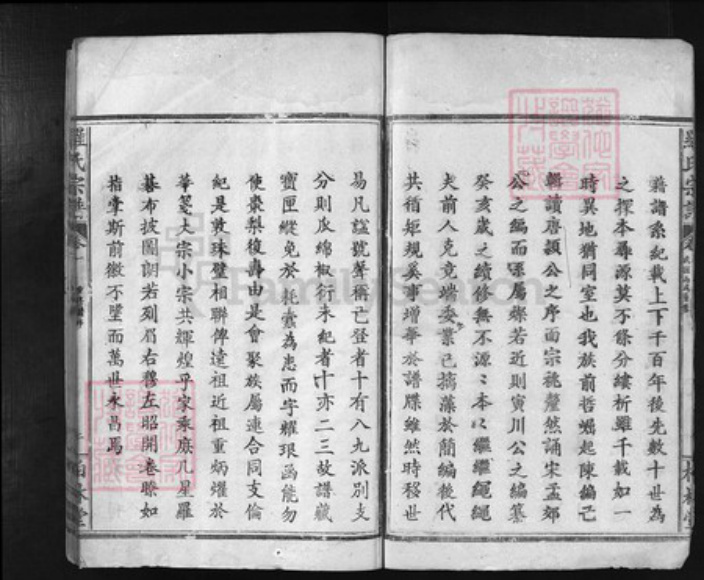 藉譜系紀載上下千百年後先數十世為
之探本尋源莫不條分縷析雖千載如一
時異地猶同室也我族前哲崛起陳編已
輯讀唐頴公之序而宗祧釐然誦宋孟郊
公之編而系屬燦若近則寅川公之編纂
癸亥歲之續修無不源〻本〻繼繼繩繩
夫前人克竟端委業已摛藻於簡編後代
共循矩規奚事增華於譜牒雖然時移世
易凡諡號聲稱已登者十有八九派別支
分則瓜綿椒衍未紀者十亦二三故譜藏
寶匣縱免於耗蠹為患而字耀琅函能勿
使棗梨復壽由是會聚族屬連合同支倫
紀是敦珠璧相聯俾遠祖近祖重炳燿於
華箋大宗小宗共輝煌乎家乘庶几星羅
棊布披圖朗若列眉右穆左昭開卷瞭如
指掌斯前徽不墜而萬世永昌焉
羅氏宗譜
卷一
柏林堂
FamilySearch